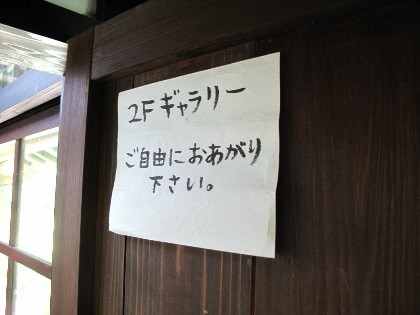 2Fギャラリー
ご自由におあがり
下さい。